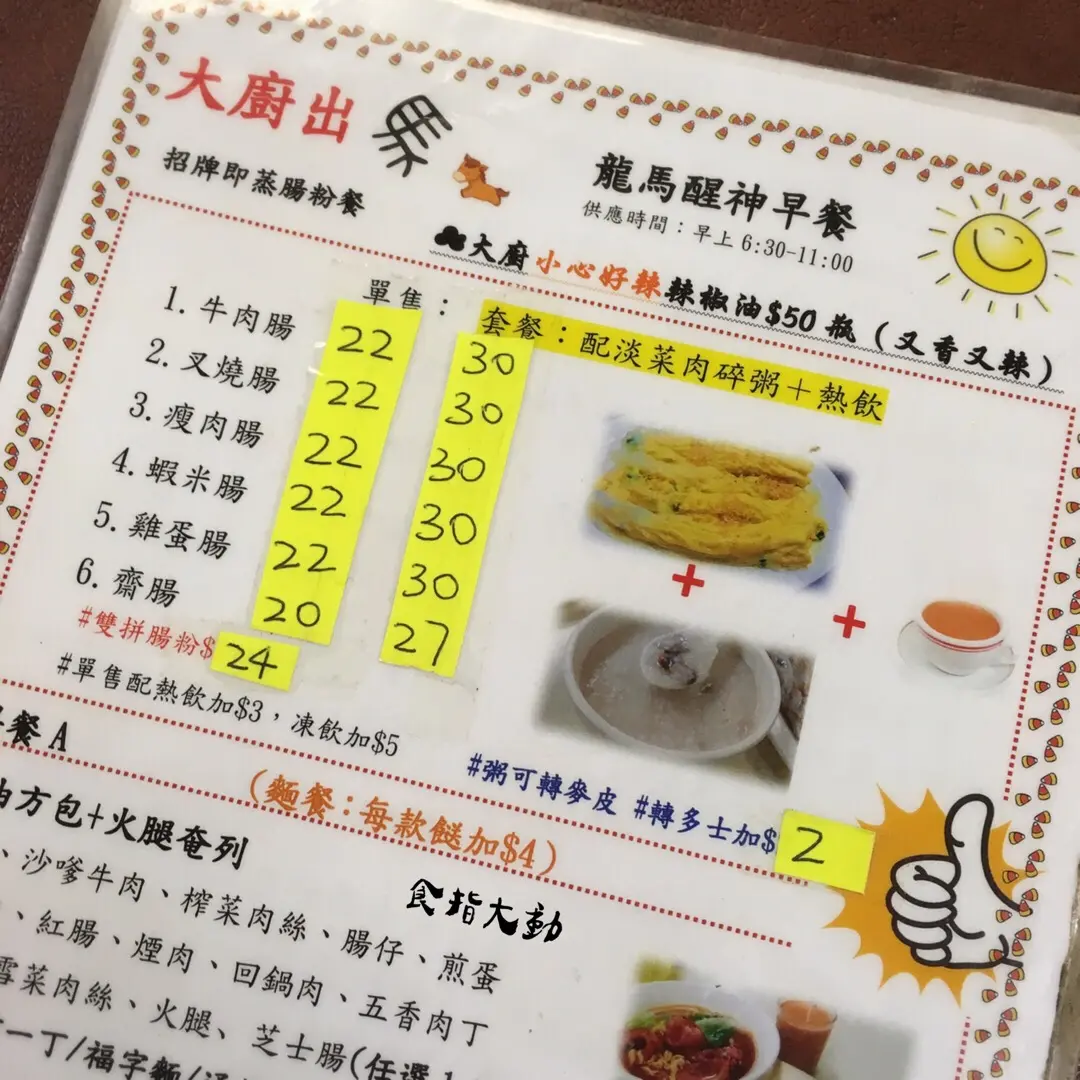 大廚出馬
招牌即蒸腸粉餐
龍馬醒神早餐
供應時間：早上 6:30-11:00
♣大廚小心好辣辣椒油$50 瓶（又香又辣）
單售： 套餐：配淡菜肉碎粥＋熱飲
1. 牛肉腸 22 30
2. 叉燒腸 22 30
3. 瘦肉腸 22 30
4. 蝦米腸 22 30
5. 雞蛋腸 22 30
6. 齋腸 20 27
#雙拼腸粉$24
#單售配熱飲加$3，凍飲加$5
#粥可轉麥皮 #轉多士加$2
餐 A
（麵餐：每款餸加$4）
方包+火腿奄列
、沙嗲牛肉、榨菜肉絲、腸仔、煎蛋
食指大動
、紅腸、煙肉、回鍋肉、五香肉丁
雪菜肉絲、火腿、芝士腸(任選
一丁/福字麵/